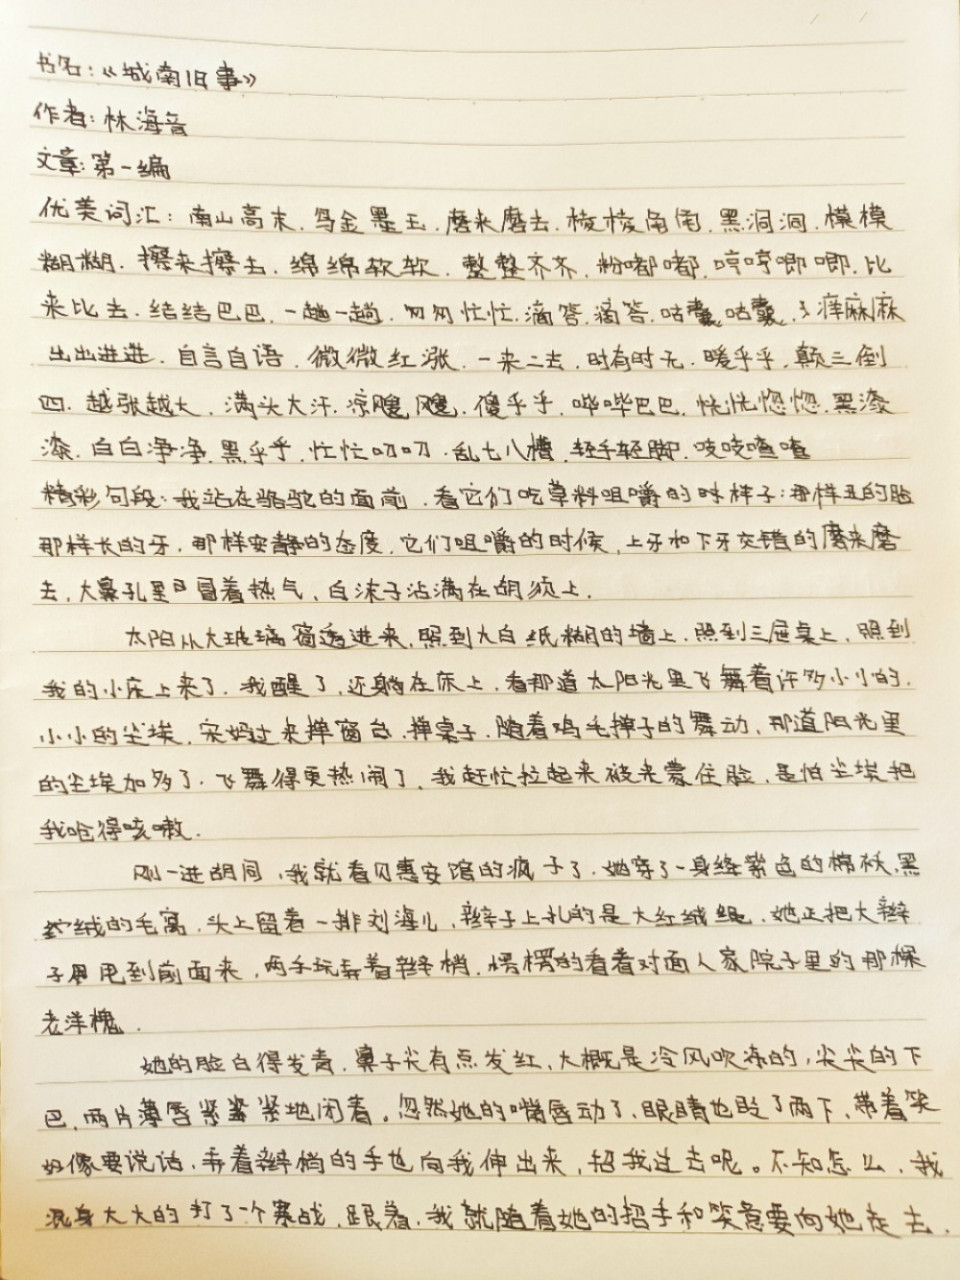 书名：《城南旧事》
作者：林海音
文章：第一编
优美词汇：南山高末．乌金墨玉．磨来磨去．棱棱角角．黑洞洞．模模
糊糊．擦来擦去．绵绵软软．整整齐齐．粉嘟嘟．哼哼唧唧．比
来比去．结结巴巴．一趟一趟．匆匆忙忙．滴答滴答．咕囊咕囊．痒麻麻
出出进进．自言自语．微微红涨．一来二去．时有时无．暖乎乎．颠三倒
四．越张越大．满头大汗．凉飕飕．傻乎乎．哗哗巴巴．恍恍惚惚．黑漆
漆．白白净净．黑乎乎．忙忙叨叨．乱七八槽．轻手轻脚．吱吱喳喳
精彩句段：我站在骆驼的面前，看它们吃草料咀嚼的样子：那样丑的脸
那样长的牙，那样安静的态度，它们咀嚼的时候，上牙和下牙交错的磨来磨
去，大鼻孔里冒着热气，白沫子沾满在胡须上．
太阳从大玻璃窗透进来，照到大白纸糊的墙上，照到三屉桌上，照到
我的小床上来了．我醒了，还躺在床上，看那道太阳光里飞舞着许多小小的，
小小的尘埃．宋妈过来掸窗台，掸桌子，随着鸡毛掸子的舞动，那道阳光里
的尘埃加多了．飞舞得更热闹了，我赶忙拉起来被来蒙住脸，是怕尘埃把
我呛得咳嗽．
刚一进胡同，我就看见惠安馆的疯子了．她穿了一身绛紫色的棉袄，黑
绒的毛窝，头上留着一排刘海儿，辫子上扎的是大红绒绳，她正把大辫
子甩到前面来，两手玩弄着辫梢，愣愣的看着对面人家院子里的那棵
老洋槐．
她的脸白得发青，鼻子尖有点发红，大概是冷风吹冻的，尖尖的下
巴，两片薄唇紧紧地闭着。忽然她的嘴唇动了，眼睛也眨了两下，带着笑
好像要说话，弄着辫梢的手也向我伸出来，招我过去呢。不知怎么，我
混身大大的打了个寒战，跟着，我就随着她的招手和笑意要向她走去．